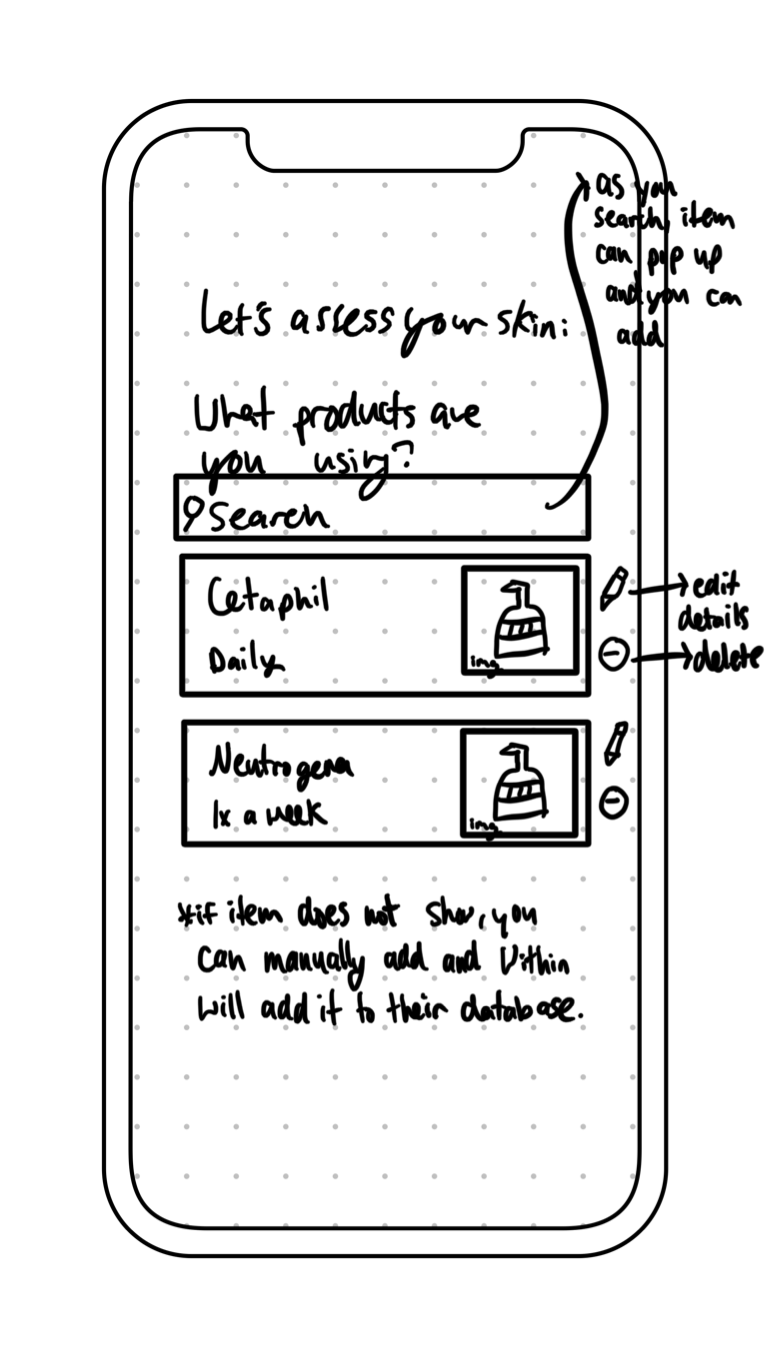 as you
search, item
can pop up
and you can
add
Let's assess your skin:
What products are
you using?
Search
Cetaphil
Daily
img
edit
details
delete
Neutrogena
1x a week
img
*if item does not show, you
can manually add and Within
will add it to their database.